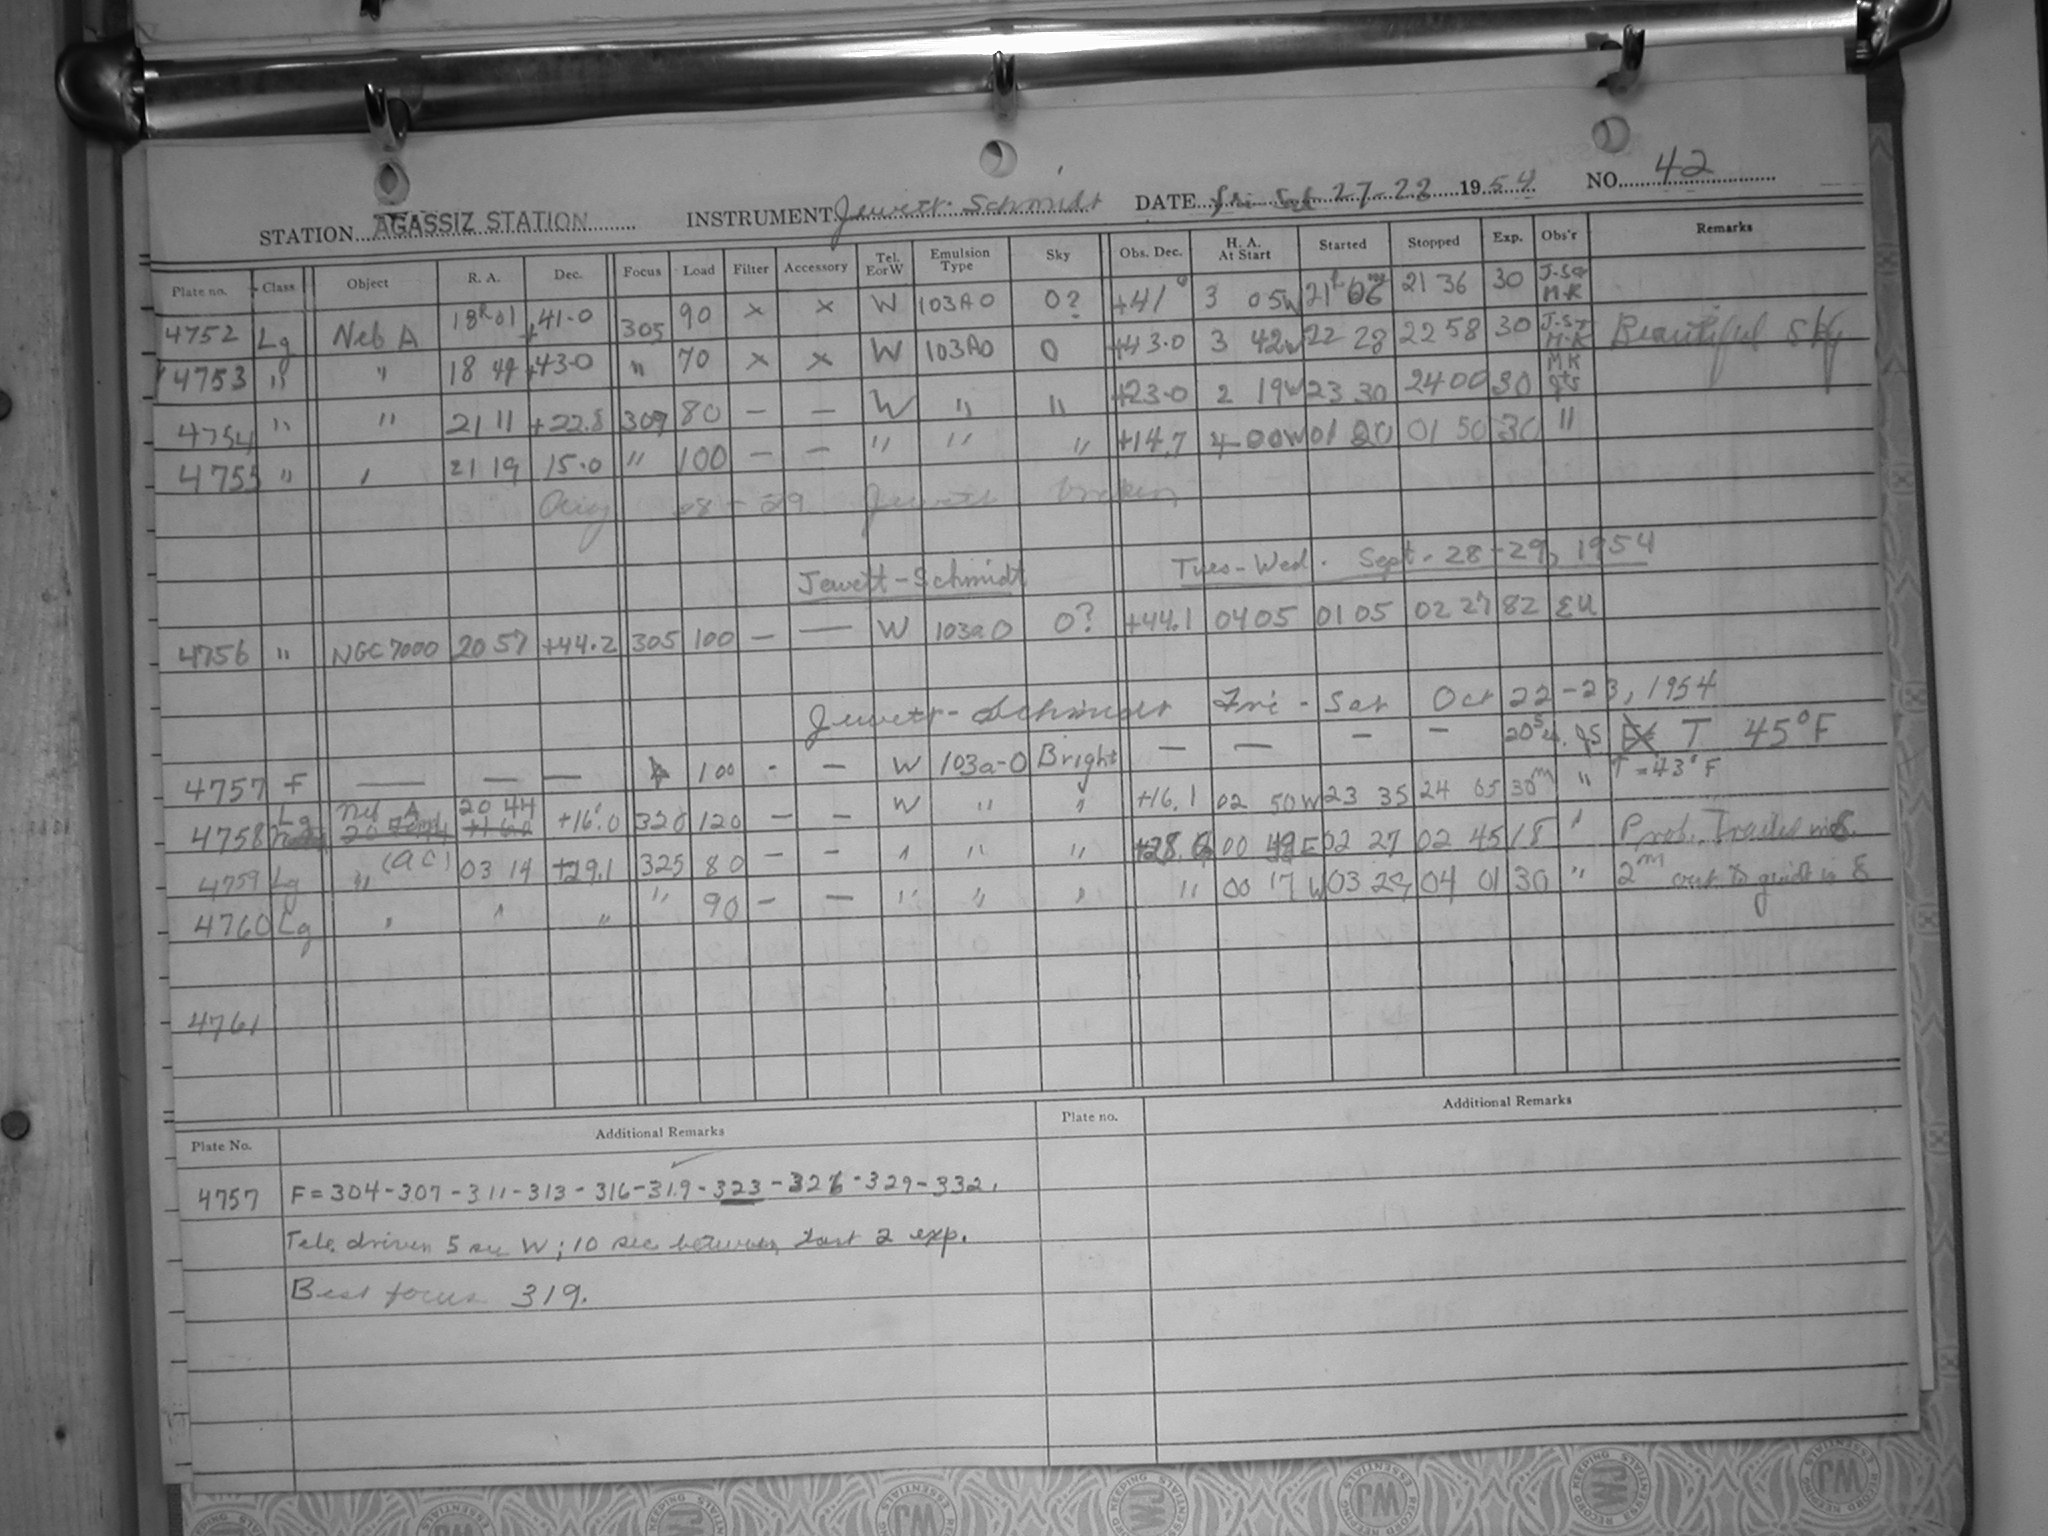 STATION AGASSIZ STATION INSTRUMENT Jewett-Schmidt DATE Fri Sat 27-28 1954 NO. 42
Plate no. Class Object R. A. Dec. Focus Load Filter Accessory Tel. EorW Emulsion Type Sky Obs. Dec. H. A. At Start Started Stopped Exp. Obs'r Remarks
4752 Lg Neb A 18h01 +41.0 305 90 x x W 103AO O? +41° 3 05W 21h 06m 21 36 30 M.K
4753 " " 18 49 +43.0 " 70 x x W 103AO O +43.0 3 42W 22 28 22 58 30 M.K Beautiful Sky
4754 " " 21 11 +22.8 307 80 — — W " " +23.0 2 19W 23 30 24 00 30 M.K
4755 " " 21 19 15.0 " 100 — — " " " +14.7 4 00W 01 20 01 50 30 "
Aug 28-29 Jewett broken
Jewett-Schmidt Tues-Wed. Sept. 28-29, 1954
4756 " NGC 7000 20 57 +44.2 305 100 — — W 103aO O? +44.1 04 05 01 05 02 27 82 EU
Jewett-Schmidt Fri - Sat Oct 22-23, 1954
4757 F — — — 100 - — W 103a-O Bright — — — — 20s JS T 45°F
4758 Lg Neb A 20 44 +16.0 320 120 — — W " " +16.1 02 50W 23 35 24 05 30m " T=43°F
4759 Lg " (AC) 03 14 +29.1 325 80 — — " " " 00 49E 02 27 02 45 18 " Prob. Trailed
4760 Lg " " " " 90 — — " " " " 00 17W 03 29 04 01 30 " 2m out to guide in
4761
Plate No. Additional Remarks Plate no. Additional Remarks
4757 F = 304-307-311-313-316-319-323-326-329-332.
Tele. driven 5 sec W; 10 sec between last 2 exp.
Best focus 319.